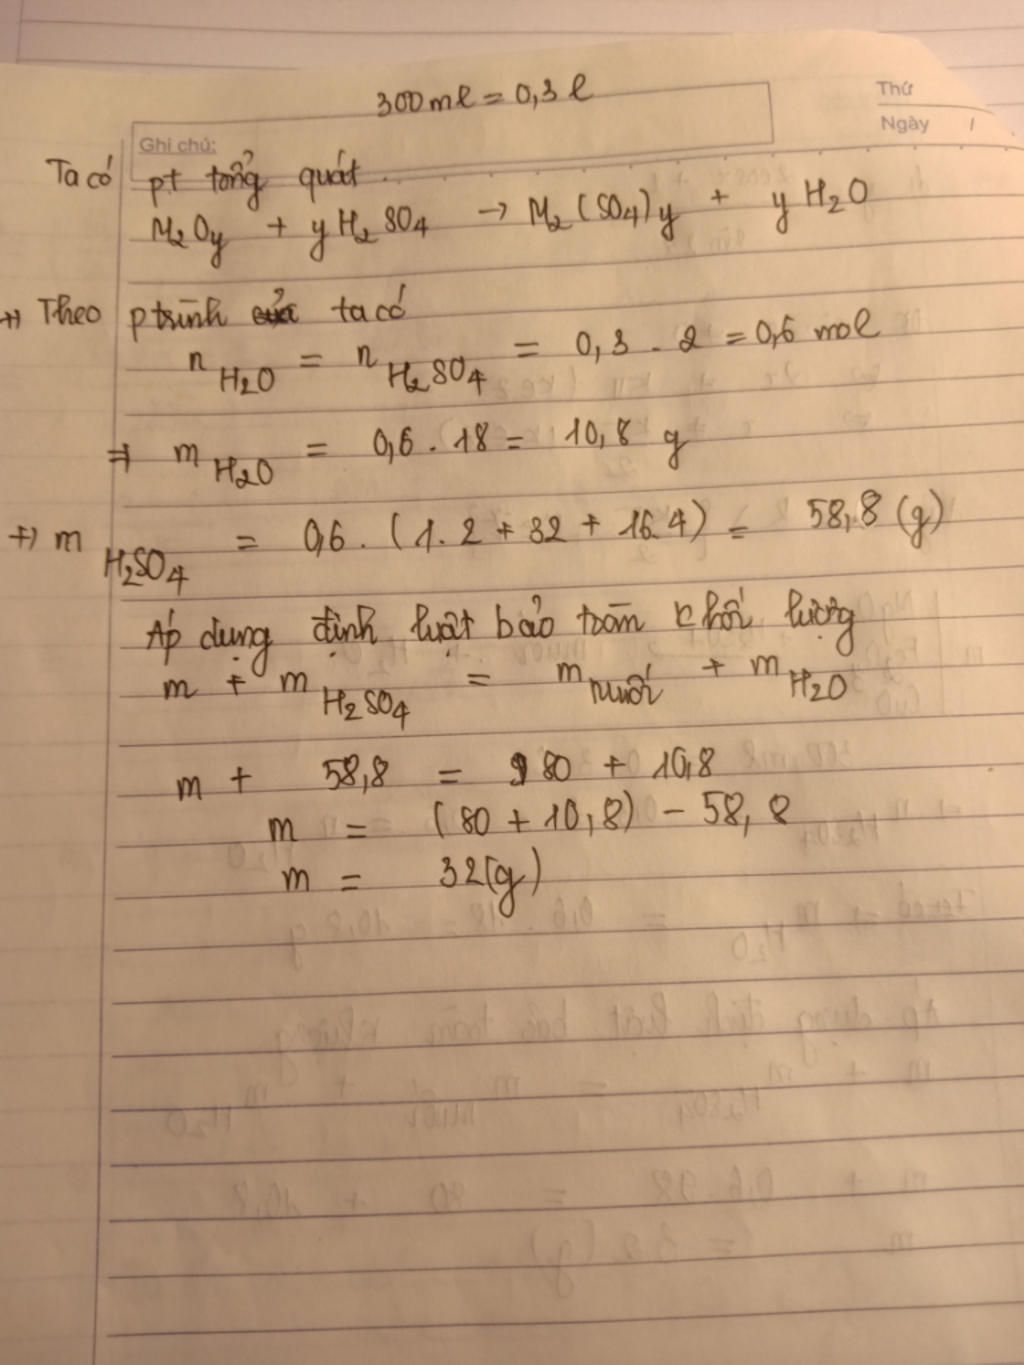 300 ml = 0,3 l
Thứ
Ngày /
Ghi chú:
Ta có pt tổng quát
M2Oy + y H2SO4 → M2(SO4)y + y H2O
+) Theo ptrình ta có
n H2O = n H2SO4 = 0,3 . 2 = 0,6 mol
⇒ m H2O = 0,6 . 18 = 10,8 g
+) m H2SO4 = 0,6 . (1.2 + 32 + 16.4) = 58,8 (g)
Áp dụng định luật bảo toàn khối lượng
m + m H2SO4 = m muối + m H2O
m + 58,8 = 80 + 10,8
m = (80 + 10,8) - 58,8
m = 32(g)